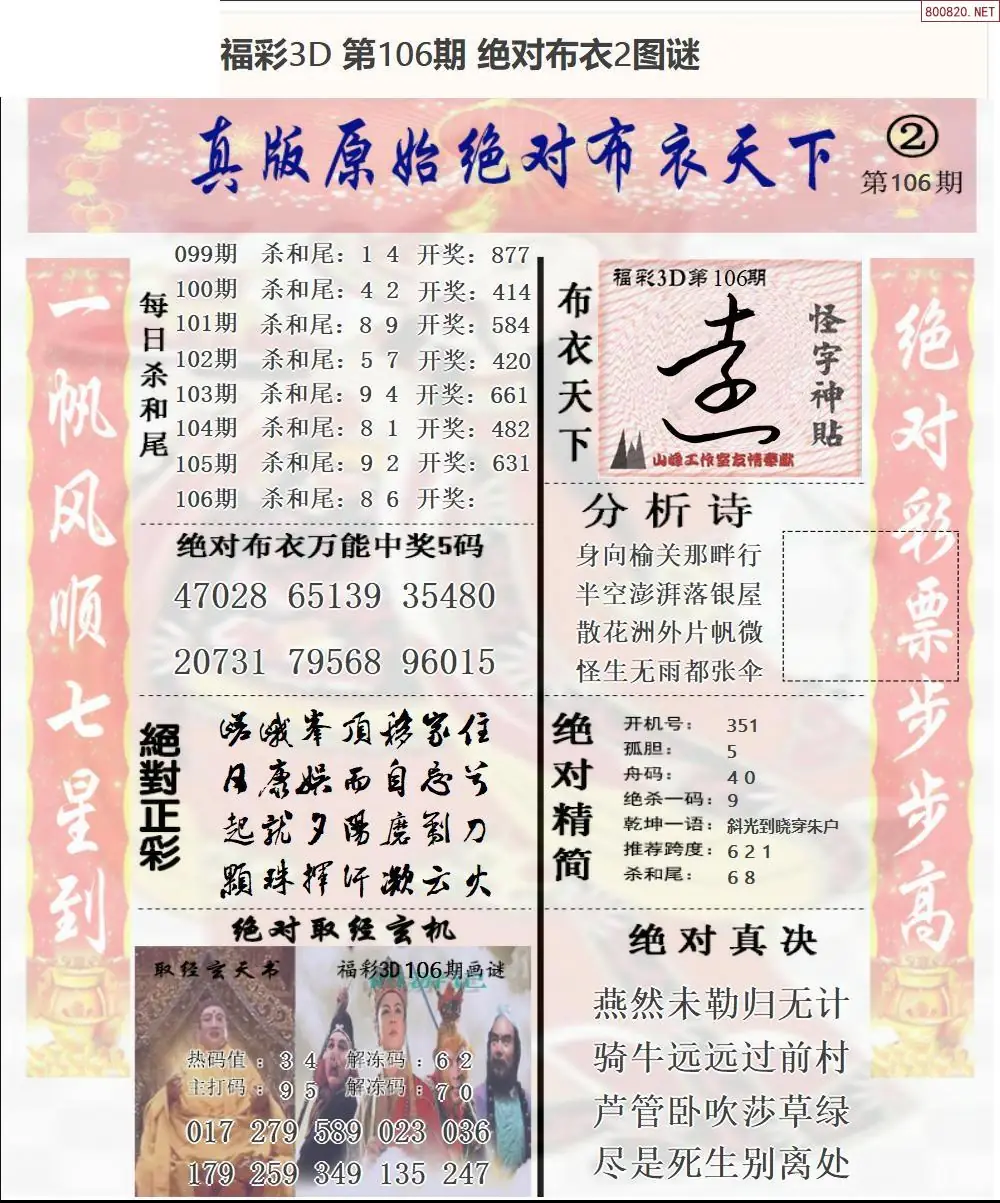 800820.NET
福彩3D 第106期 绝对布衣2图谜
真版原始绝对布衣天下
②
第106期
一帆风顺七星到
每日杀和尾
099期 杀和尾：1 4 开奖：877
100期 杀和尾：4 2 开奖：414
101期 杀和尾：8 9 开奖：584
102期 杀和尾：5 7 开奖：420
103期 杀和尾：9 4 开奖：661
104期 杀和尾：8 1 开奖：482
105期 杀和尾：9 2 开奖：631
106期 杀和尾：8 6 开奖：
绝对布衣万能中奖5码
47028 65139 35480
20731 79568 96015
絕對正彩
峰顶移家住
日康娱而自忘兮
起就夕陽磨剃刀
顆珠揮汗凝云火
绝对取经玄机
取经玄天书
福彩3D106期画谜
热码值：3 4 解冻码：6 2
主打码：9 5 解冻码：7 0
017 279 589 023 036
179 259 349 135 247
布衣天下
福彩3D第106期
怪字神貼
山峰工作室友情奉献
分析诗
身向榆关那畔行
半空澎湃落银屋
散花洲外片帆微
怪生无雨都张伞
绝对精简
开机号：351
孤胆：5
舟码：4 0
绝杀一码：9
乾坤一语：斜光到晓穿朱户
推荐跨度：6 2 1
杀和尾：6 8
绝对真决
燕然未勒归无计
骑牛远远过前村
芦管卧吹莎草绿
尽是死生别离处
绝对彩票步步高